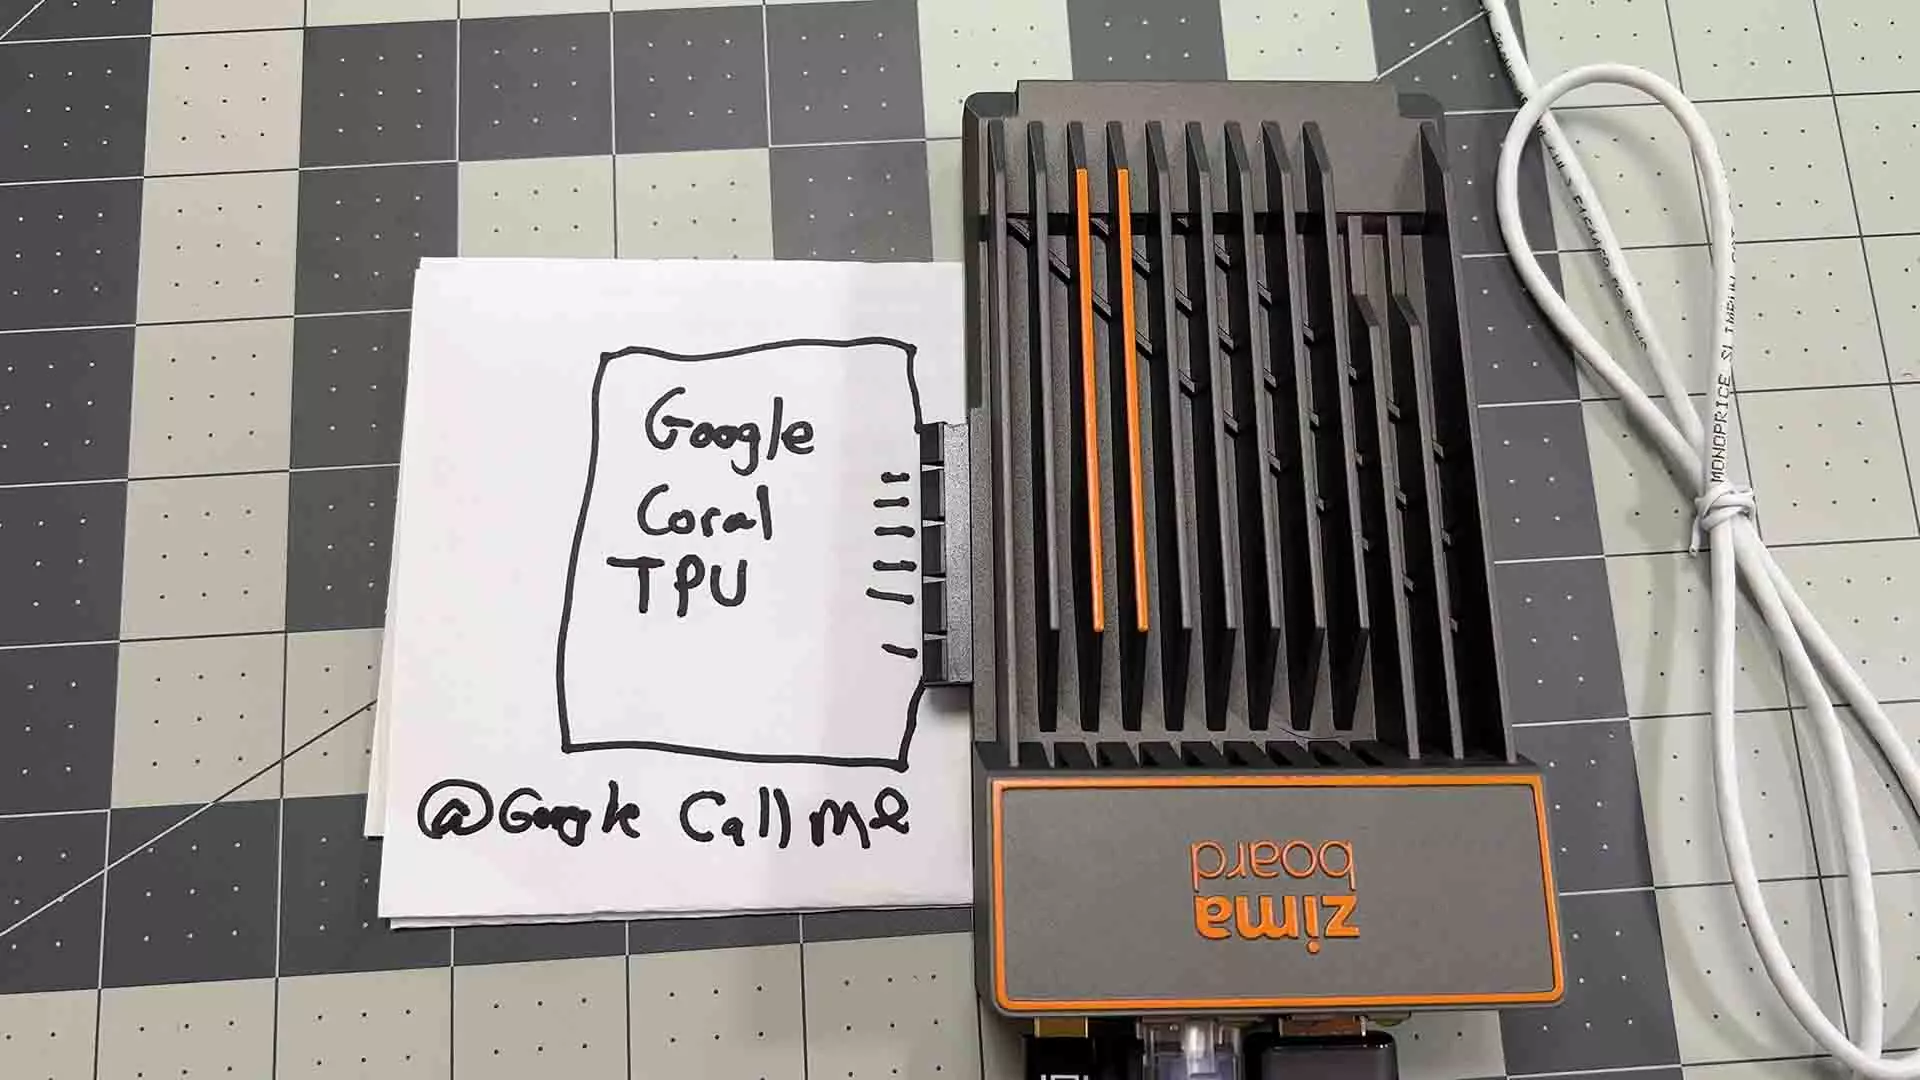 Google
Coral
TPU
@Google Call me
zima
board
MONOPRICE SLIMRUN